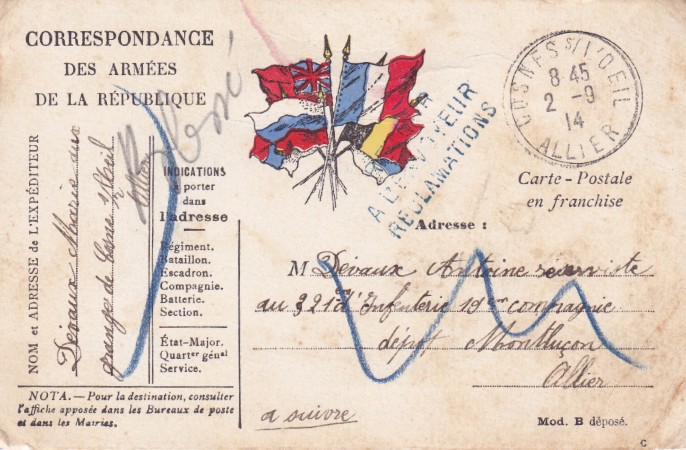 CORRESPONDANCE
DES ARMÉES
DE LA RÉPUBLIQUE
NOM et ADRESSE de L'EXPÉDITEUR
Dévaux Marie aux
granges de Cosne s/l'Œil
INDICATIONS
à porter
dans
l'adresse
Régiment.
Bataillon.
Escadron.
Compagnie.
Batterie.
Section.
État-Major.
Quartier général
Service.
NOTA. — Pour la destination, consulter
l'affiche apposée dans les Bureaux de poste
et dans les Mairies.
COSNES s/ L'OEIL
8 45
2 -9
14
ALLIER
A L'ENVOYEUR
RÉCLAMATIONS
Carte-Postale
en franchise
Adresse :
M Dévaux Antoine réserviste
au 321 d'Infenterie 19me compagnie
dépot Montluçon
Allier
a suivre
Mod. B déposé.
C